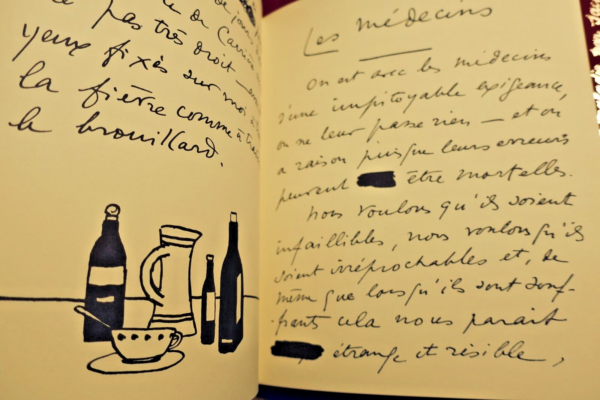 pas très droit —
yeux fixés sur moi à
la fièvre comme à
le brouillard.
Les médecins
On est avec les médecins
d'une impitoyable exigeance,
on ne leur passe rien — et on
a raison puisque leurs erreurs
peuvent être mortelles.
Nous voulons qu'ils soient
infaillibles, nous voulons qu'ils
soient irréprochables et, de
même que lorsqu'ils sont souf-
-frants cela nous paraît
étrange et risible,